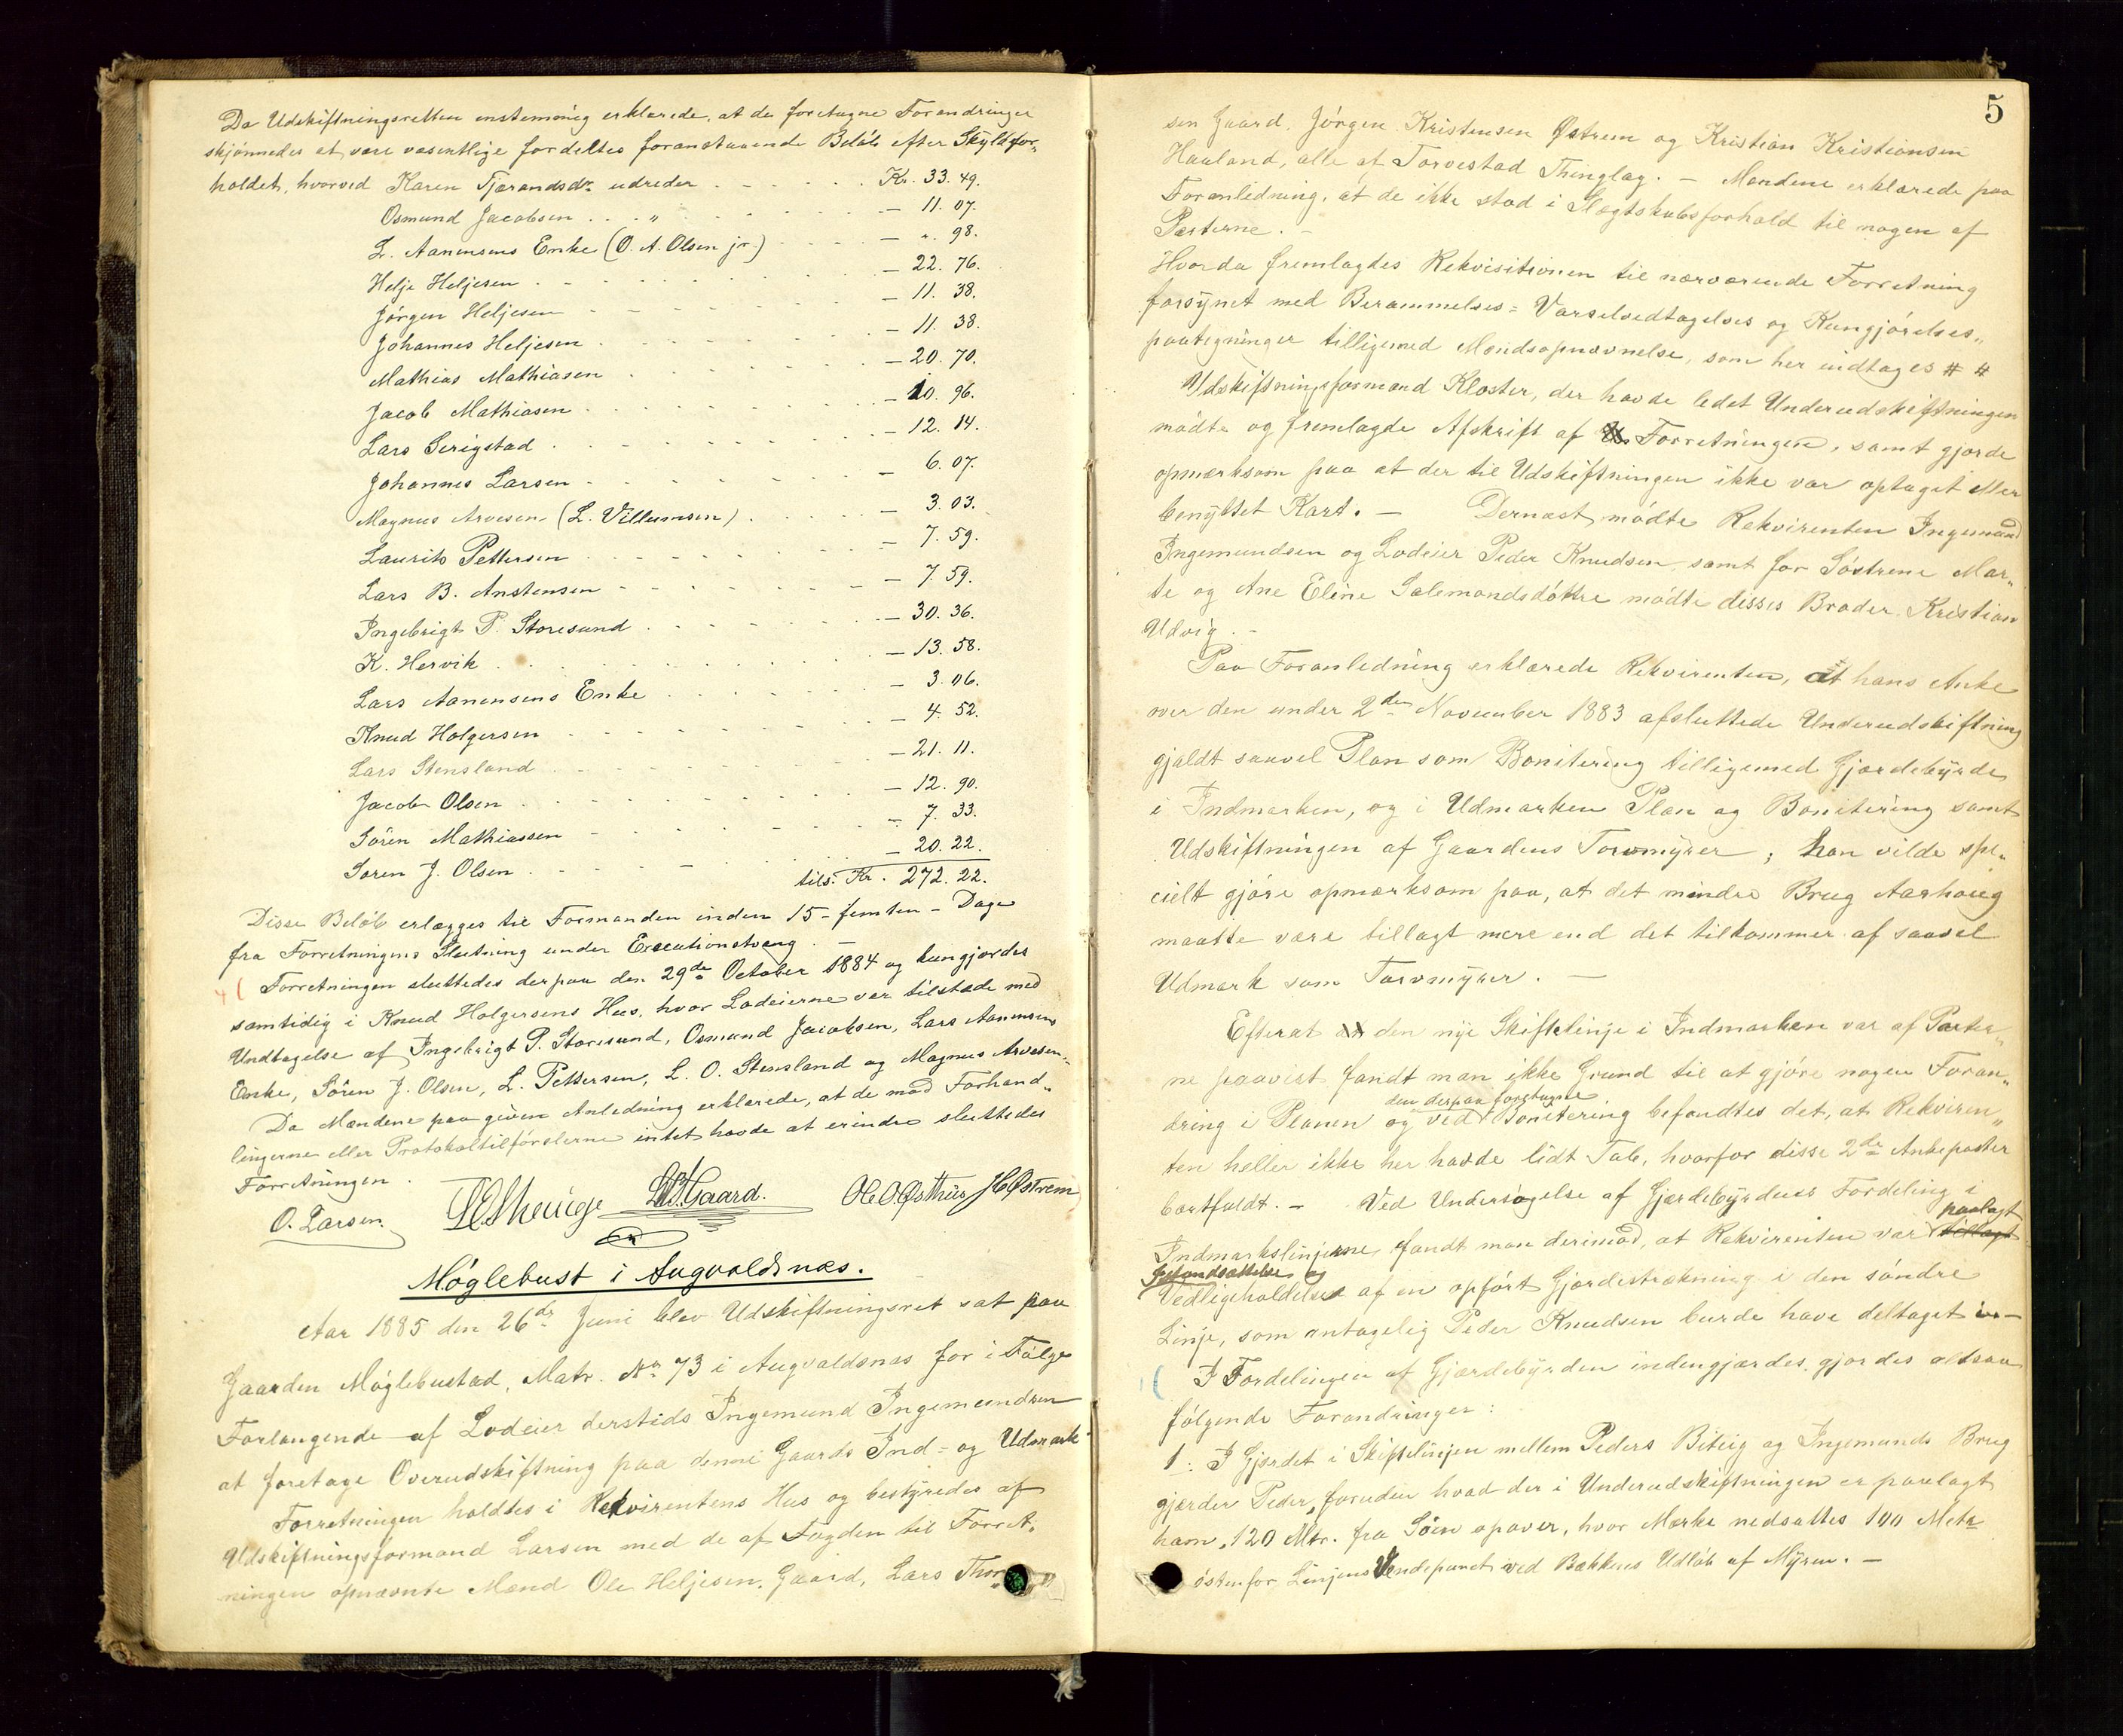 Da Udskiftningsretten enstemmig erklærede, at de foretagne Forandringer
skjønnedes at være væsentlige fordeltes foranstaaende Beløb efter Skyldfor„
holdet, hvorved Karen Tjærandsdr. udreder . . . . Kr. 33. 49.
Osmund Jacobsen . . „ . . . — 11. 07.
L. Aanensens Enke (O. A. Olsen jr.) . . — „. 98.
Helje Heljesen . . . . — 22. 76.
Jörgen Heljesen . . . . — 11. 38.
Johannes Heljesen . . . . — 11. 38.
Mathias Mathiasen . . . . — 20. 70.
Jacob Mathiasen . . . . — 10. 96.
Lars Serigstad . . . . — 12. 14.
Johannes Larsen . . . . — 6. 07.
Magnus Arvesen (L. Villumsen) . . . — 3. 03.
Laurits Pettersen . . . . — 7. 59.
Lars B. Anstensen . . . . — 7. 59.
Ingebrigt P. Storesund . . . . — 30. 36.
K. Hervik . . . . — 13. 58.
Lars Aanensens Enke . . . . — 3. 06.
Knud Holgersen . . . . — 4. 52.
Lars Stensland . . . . — 21. 11.
Jacob Olsen . . . . — 12. 90.
Sören Mathiassen . . . . — 7. 33.
Sören J. Olsen . . . . — 20. 22.
tils. Kr. 272. 22.
Disse Beløb erlægges til Formanden inden 15 - femten - Dage
fra Forretningens Slutning under Executionstvang. —
Forretningen sluttedes derpaa den 29de October 1884 og kungjordes
samtidig i Knud Holgersens Hus, hvor Lodeierne var tilstede med
Undtagelse af Ingebrigt P. Storesund, Osmund Jacobsen, Lars Aanensens
Enke, Sören J. Olsen, L. Pettersen, L. O. Stensland og Magnus Arvesen.
Da Mændene paa given Anledning erklærede, at de mod Forhand„
lingerne eller Protokoltilförslerne intet havde at erindre sluttedes
Forretningen.
O. Larsen. L. S. Gaard. Ole O. Østhus J K Østrem
Möglebust i Augvaldsnæs.
Aar 1885 den 26de Juni blev Udskiftningsret sat paa
Gaarden Möglebustad, Matr. No 73 i Augvaldsnæs for i Fölge
Forlangende af Lodeier dersteds Ingemund Ingemundsen
at foretage Overudskiftning paa denne Gaards Ind- og Udmark
Forretningen holdtes i Rekvirentens Hus og bestyredes af
Udskiftningsformand Larsen med de af Fogden til Forret„
ningen opnævnte Mænd Ole Heljesen Gaard, Lars Thor„
5
sen Gaard, Jörgen Kristensen Østrem og Kristian Kristiansen
Haaland, alle af Torvestad Thinglag. — Mændene erklærede paa
Foranledning, at de ikke stod i Slægtskabsforhold til nogen af
Parterne. —
Hvorda fremlagdes Rekvisitionen til nærværende Forretning
forsynet med Berammelses- Varselvedtagelses og Kungjörelses„
paategninger tilligemed Mændsopnævnelse, som her indtages # #
Udskiftningsformand Kloster, der havde ledet Underudskiftningen
mödte og fremlagde Afskrift af Forretningen, samt gjorde
opmærksom paa at der til Udskiftningen ikke var optaget eller
benyttet Kart. — Dernæst mödte Rekvirenten Ingemund
Ingemundsen og Lodeier Peder Knudsen, samt for Söstrene Mar„
te og Ane Eline Salemondsdöttre mödte disses Broder Kristian
Udvig. —
Paa Foranledning erklærede Rekvirenten, at hans Anke
over den under 2den November 1883 afsluttede Underudskiftning
gjaldt saavel Plan som Bonitering tilligemed Gjærdebyrde
i Indmarken, og i Udmarken Plan og Bonitering samt
Udskiftningen af Gaardens Torvmyrer; han vilde spe„
cielt gjöre opmærksom paa, at det mindre Brug Aarhaug
maatte være tillagt mere end det tilkommer af saavel
Udmark som Torvmyrer. —
Efterat den nye Skiftelinje i Indmarken var af Parter„
ne paavist fandt man ikke Grund til at gjöre nogen Foran„
den derpaa foretagne
dring i Planen og ved Bonitering befandtes det, at Rekviren„
ten heller ikke her havde lidt Tab, hvorfor disse 2de Ankeposter
bortfaldt. — Ved Undersögelse af Gjærdebyrdens Fordeling i
paalagt
Indmarkslinjerne, fandt man derimod, at Rekvirenten var tillagt
Istandsættelse og
Vedligeholdelse af en opfört Gjærdestrækning i den söndre
Linje, som antagelig Peder Knudsen burde have deltaget i. —
I Fordelingen af Gjærdebyrden indengjærdes, gjordes altsaa
fölgende Forandringer:
1. I Gjærdet i Skiftelinjen mellem Peders Biteig og Ingemunds Brug
gjærder Peder, foruden hvad der i Underudskiftningen er paalagt
ham, 120 Mtr. fra Söen opover, hvor Mærke nedsattes 100 Metr
östenfor Linjens Vendepunct ved Bækkens Udlöb af Myren. —